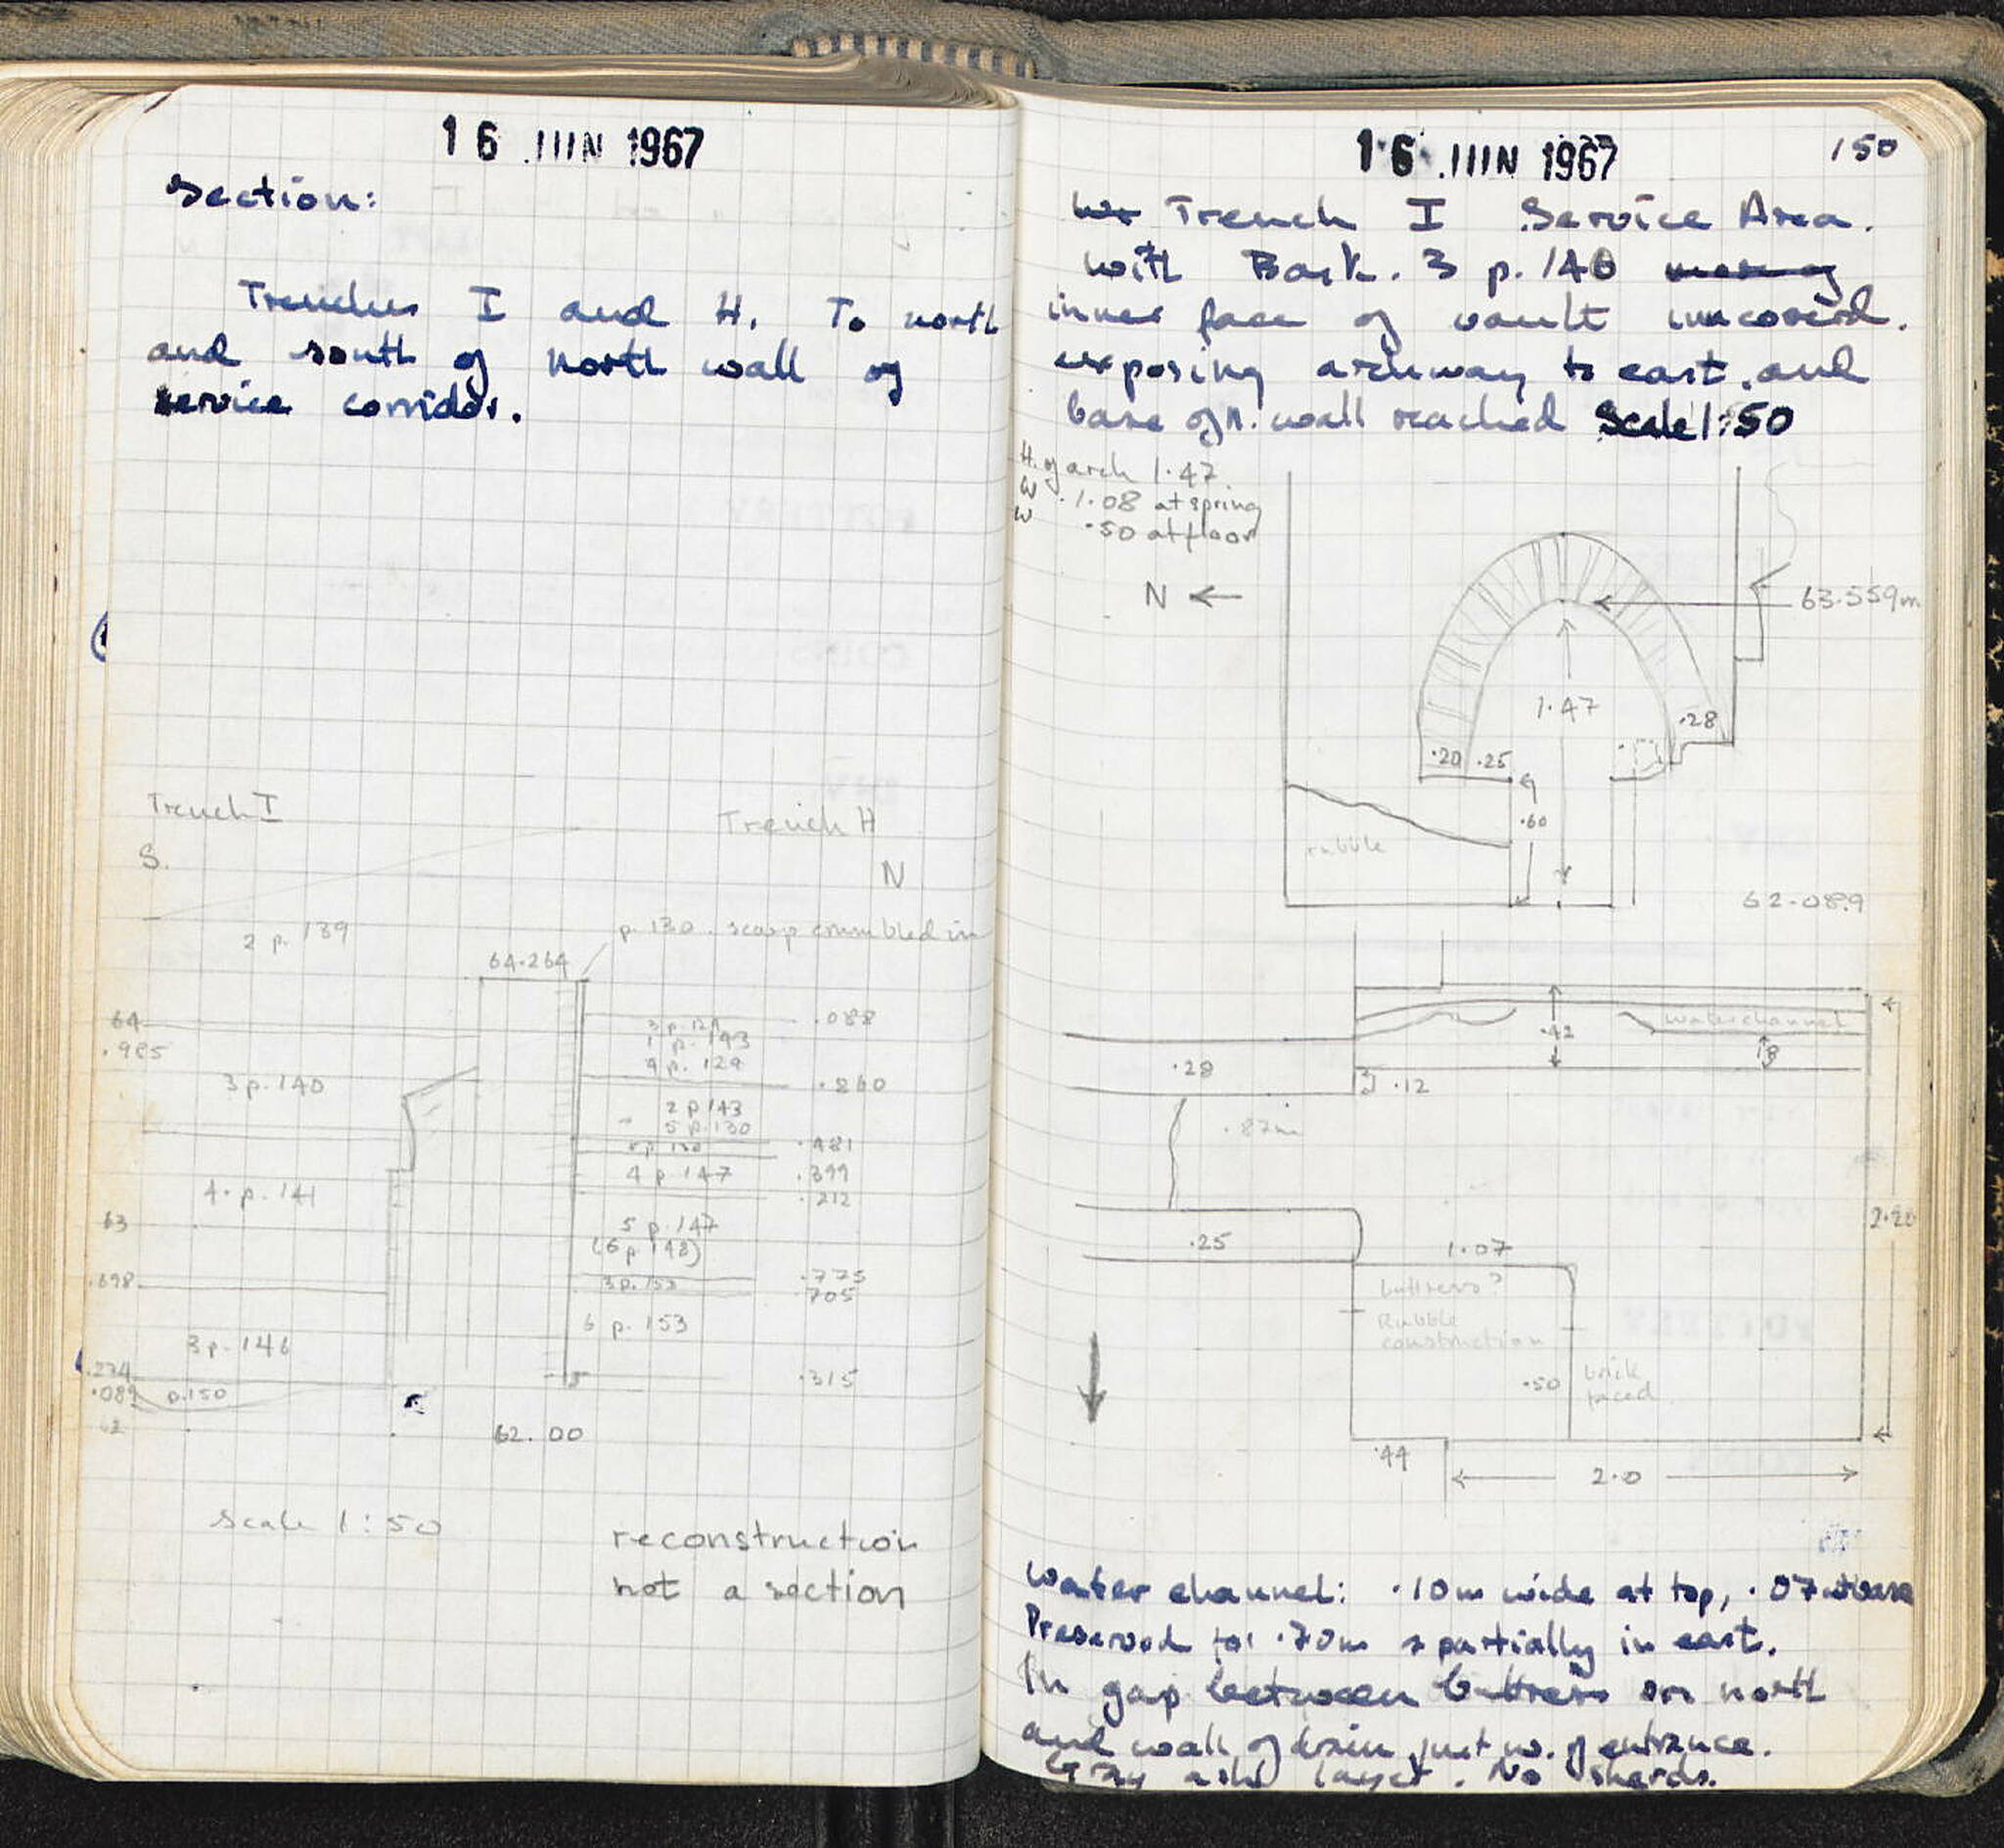 16 JUN 1967
Section:
Trenches I and H. To north
and south of north wall of
service corridor.
Trench I
Trench H
S.
N
2 p. 139
p. 130. scarp crumbled in
64.264
64
.985
.088
1 p. 143
4 p. 129
3 p. 140
.260
2 p 143
5 p. 130
.481
4 p 147
.399
.212
4. p. 141
63
5 p. 147
(6 p 148)
.698
.775
.705
6 p. 153
3 p. 146
.274
.315
.089 p.150
62
62.00
Scale 1:50
reconstruction
not a section
16 JUN 1967
150
Trench I Service Area.
with Bask. 3 p. 146
inner face of vault uncovered.
exposing archway to east, and
base of n. wall reached Scale 1:50
H. of arch 1.47
W 1.08 at spring
W .50 at floor
N
63.559m
1.47
.28
.20 .25
.60
rubble
62.089
.42
water channel
.28
.12
.87m
.25
1.07
2.20
buttress?
Rubble
construction
.50
brick
faced
.44
2.0
water channel: .10m wide at top, .07 at base
Preserved for .70m & partially in east.
In gap between buttress on north
and wall of drain just w. of entrance.
Gray ash layer. No sherds.